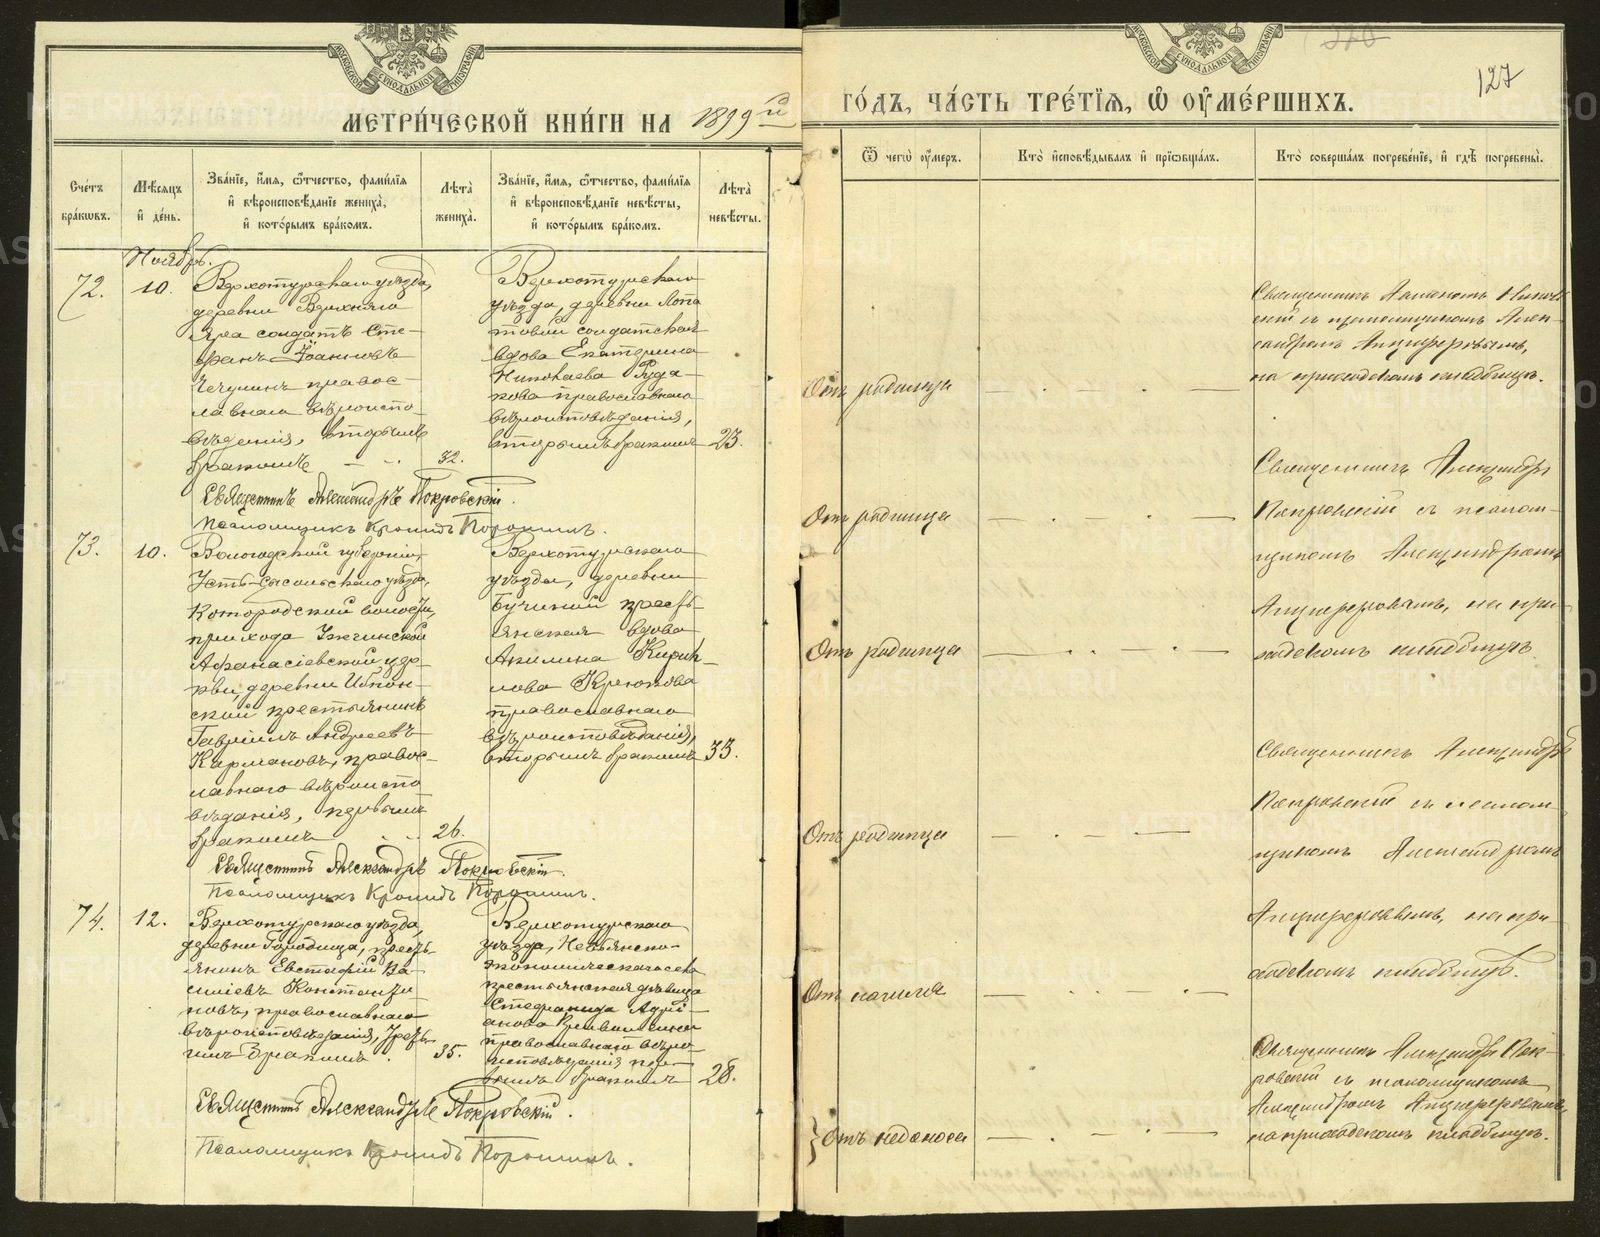 МОСКОВСКОЙ СѴНОДАЛЬНОЙ ТИПОГРАФІИ
МЕТРИ́ЧЕСКОЙ КНИ́ГИ НА 1899й
Сче́тъ бра́кѡвъ.
Мѣ́сяцъ и де́нь.
Зва́нїе, и́мя, ѻ҆́тчество, фами́лїя и вѣроисповѣ́данїе жениха̀, и кото́рымъ бра́комъ.
Лѣта̀ жениха̀.
Зва́нїе, и́мя, ѻ҆́тчество, фами́лїя и вѣроисповѣ́данїе невѣ́сты, и кото́рымъ бра́комъ.
Лѣта̀ невѣ́сты.
Ноябрь.
72.
10.
Верхотурскаго уѣзда,
деревни Верхняго
Яра солдатъ Сте-
фанъ Іоанновъ
Чечулинъ правос-
лавнаго вѣроиспо-
вѣданія, вторымъ
бракомъ
32.
Верхотурскаго
уѣзда, деревни Лопа
товой солдатская
вдова Екатерина
Николаева Руда-
кова православнаго
вѣроисповѣданія,
вторымъ бракомъ
23.
Священникъ Александръ Покровскій.
Псаломщикъ Кронидъ Порошинъ.
73.
10.
Вологодской губерніи,
Усть-Сысольскаго уѣзда,
волости,
прихода Ужгинской
Афанасіевской цер-
кви, деревни
ской крестьянинъ
Гавріилъ Андреевъ
Кармановъ, правос-
лавнаго вѣроиспо
вѣданія, первымъ
бракомъ
26.
Верхотурскаго
уѣзда, деревни
Бучиной кресть-
янская вдова
Акилина Кирил-
лова Крюкова
православнаго
вѣроисповѣданія,
вторымъ бракомъ
33.
Священникъ Александръ Покровскій.
Псаломщикъ Кронидъ Порошинъ.
74.
12.
Верхотурскаго уѣзда,
деревни Городища, кресть-
янинъ Евстафій Ва-
силіевъ Константи-
новъ, православнаго
вѣроисповѣданія, треть-
имъ бракомъ.
35.
Верхотурскаго
уѣзда, Невьянско-
экономическаго села
крестьянская дѣвица
Стефанида Адрі-
анова
православнаго вѣро-
исповѣданія пер-
вымъ бракомъ
28.
Священникъ Александръ Покровскій.
Псаломщикъ Кронидъ Порошинъ.
МОСКОВСКОЙ СѴНОДАЛЬНОЙ ТИПОГРАФІИ
127
ГО́ДЪ, ЧА́СТЬ ТРЕ́ТЇЯ, Ѡ҆ ОУ҆МЕ́РШИХЪ.
Ѿ чегѡ̀ оу҆́меръ.
Кто̀ и҆сповѣ́дывалъ и҆ прїѡбща́лъ.
Кто̀ соверша́лъ погребе́нїе, и҆ гдѣ̀ погребены̀.
Отъ родимца
Священникъ
скій съ псаломщикомъ Алек-
сандромъ Анциферовымъ,
на приходскомъ кладбищѣ.
Отъ родимца
Священникъ Александръ
Покровскій съ псалом-
щикомъ Александромъ
Анциферовымъ, на при-
ходскомъ кладбищѣ
Отъ родимца
Отъ родимца
Священникъ Александръ
Покровскій съ псалом-
щикомъ Александромъ
Анциферовымъ, на при-
ходскомъ кладбищѣ.
Отъ кашля
Отъ недоноса
Священникъ Александръ Пок-
ровскій съ псаломщикомъ
Александромъ Анциферовымъ,
на приходскомъ кладбищѣ.